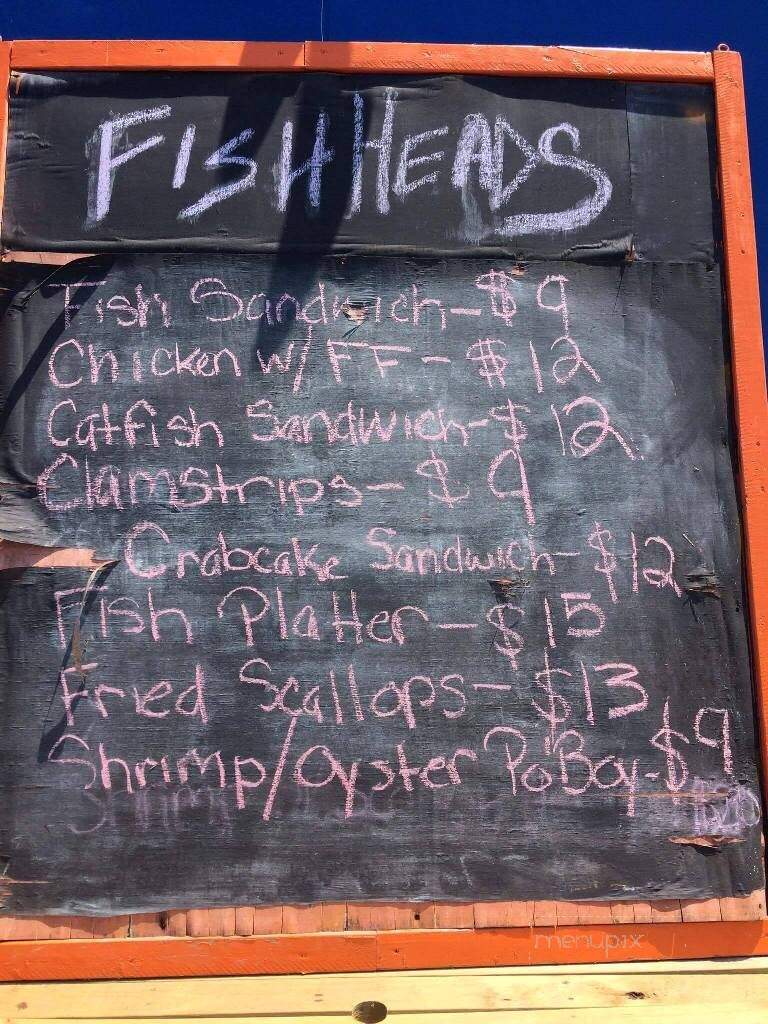 FISHHEADS
Fish Sandwich-$9
Chicken w/ FF-$12
Catfish Sandwich-$12
Clamstrips-$9
Crabcake Sandwich-$12
Fish Platter-$15
Fried Scallops-$13
Shrimp/Oyster Po'Boy-$9
menupix